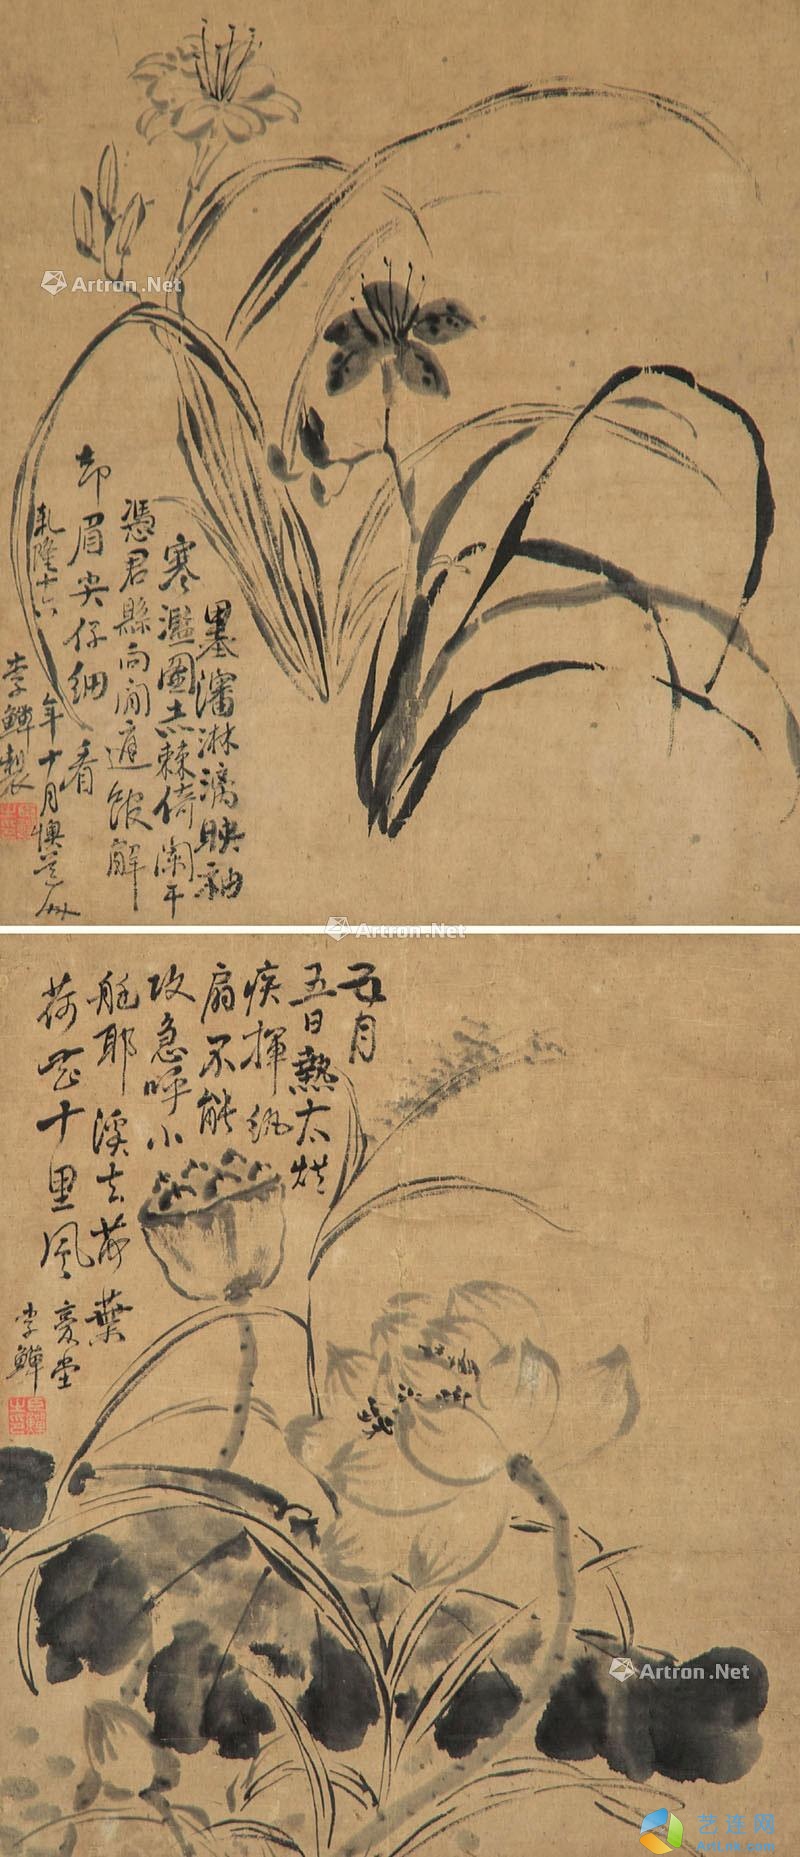 Artron.Net
墨瀋淋漓映袖
寒濫圖赤棘倚闌干
憑君縣向閒適館解
却眉尖仔細看
乾隆十六年十月懊道人
李鱓製
Artron.Net
五月
五日熱太烘
疾揮紈
扇不能
攻急呼小
艇耶溪去荷葉
荷花十里風
復堂
李鱓
Artron.Net
艺连网